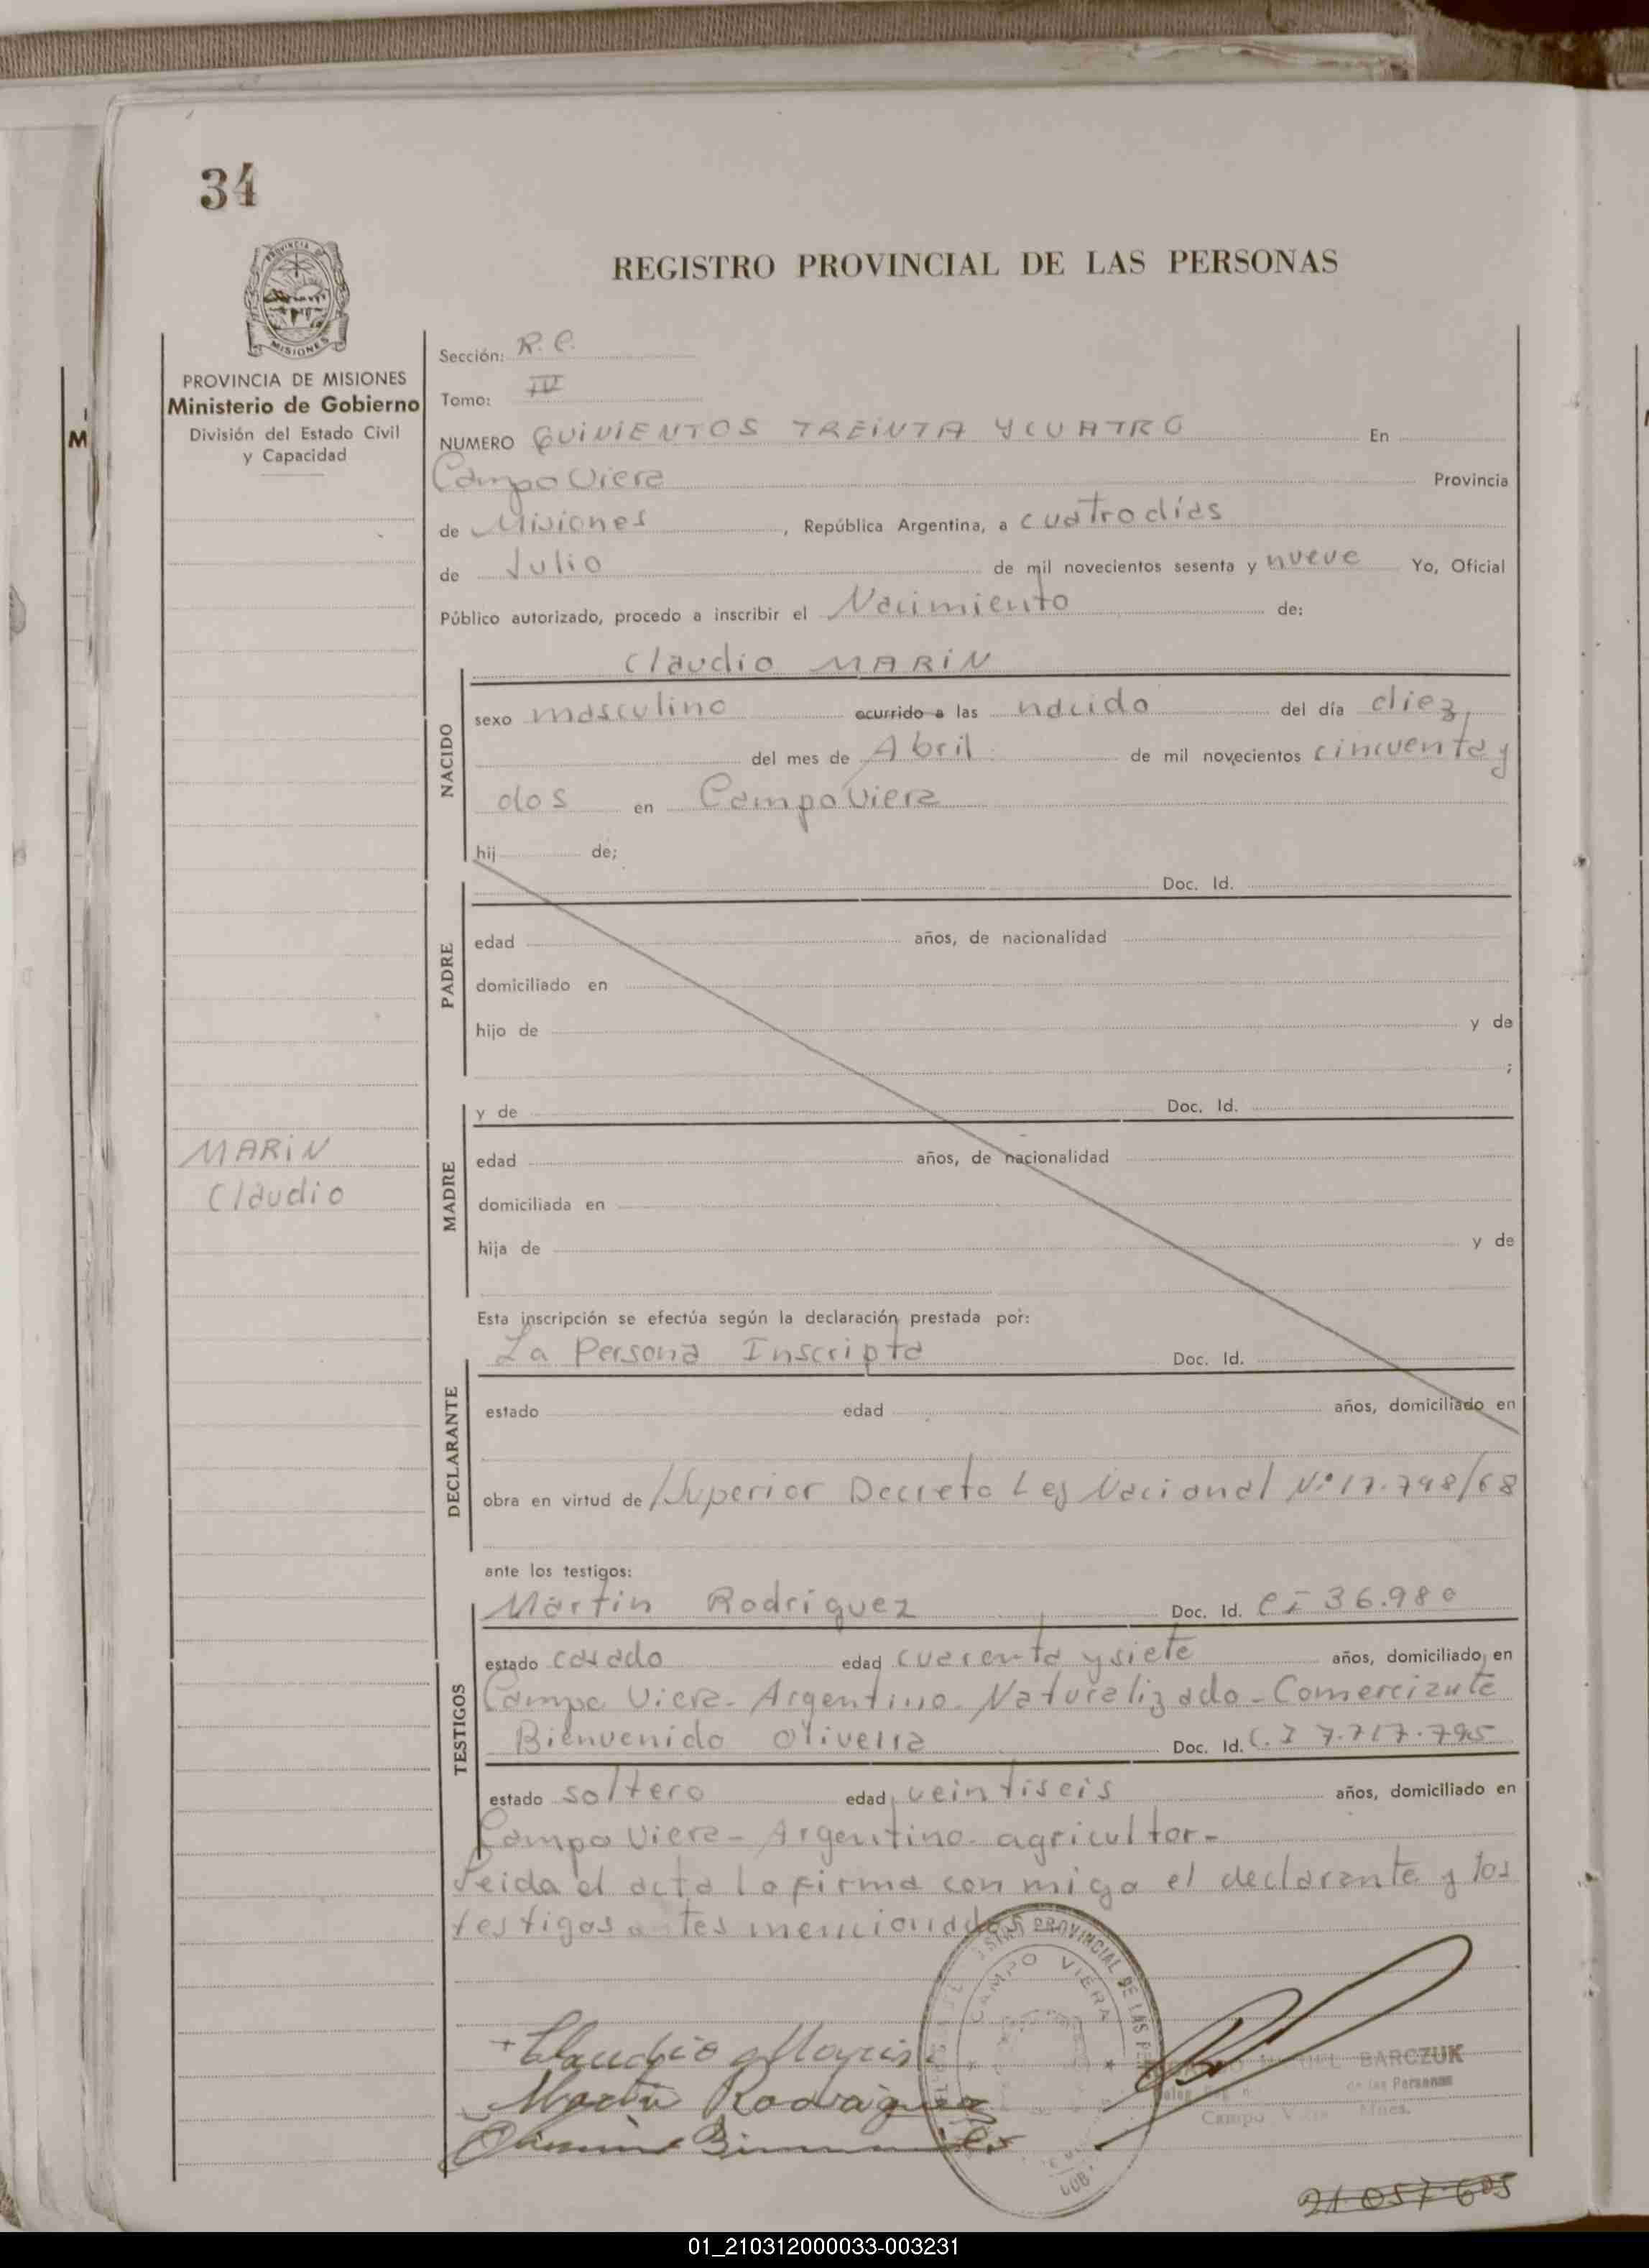 34
PROVINCIA DE
MISIONES
PROVINCIA DE MISIONES
Ministerio de Gobierno
División del Estado Civil
y Capacidad
M
REGISTRO PROVINCIAL DE LAS PERSONAS
Sección: R. C.
Tomo: IV
NUMERO QUINIENTOS TREINTA Y CUATRO En
Campo Viera Provincia
de Misiones, República Argentina, a cuatro días
de Julio de mil novecientos sesenta y nueve Yo, Oficial
Público autorizado, procedo a inscribir el Nacimiento de:
Claudio MARIN
NACIDO
sexo masculino ocurrido a las nacido del día diez,
del mes de Abril de mil novecientos cincuenta y
dos en Campo Viera
hij de;
PADRE
Doc. Id.
edad años, de nacionalidad
domiciliado en
hijo de y de
;
MADRE
y de Doc. Id.
edad años, de nacionalidad
domiciliada en
hija de y de
MARIN
Claudio
Esta inscripción se efectúa según la declaración prestada por:
DECLARANTE
La Persona Inscripta Doc. Id.
estado edad años, domiciliado en
obra en virtud de Superior Decreto Ley Nacional Nº 17.748/68
ante los testigos:
TESTIGOS
Martin Rodriguez Doc. Id. C I 36.980
estado casado edad cuarenta y siete años, domiciliado en
Campo Viera - Argentino - Naturalizado - Comerciante
Bienvenido Oliveira Doc. Id. C. I 7.717.795
estado soltero edad veintiseis años, domiciliado en
Campo Viera - Argentino - agricultor -
Leida el acta la firma con migo el declarante y los
testigos antes mencionados
PROVINCIAL DE LAS
CAMPO VIERA
Claudio Marin
Martin Rodriguez
BARCZUK
de las Personas
Campo Viera Mnes.
21 057 605
01_210312000033-003231